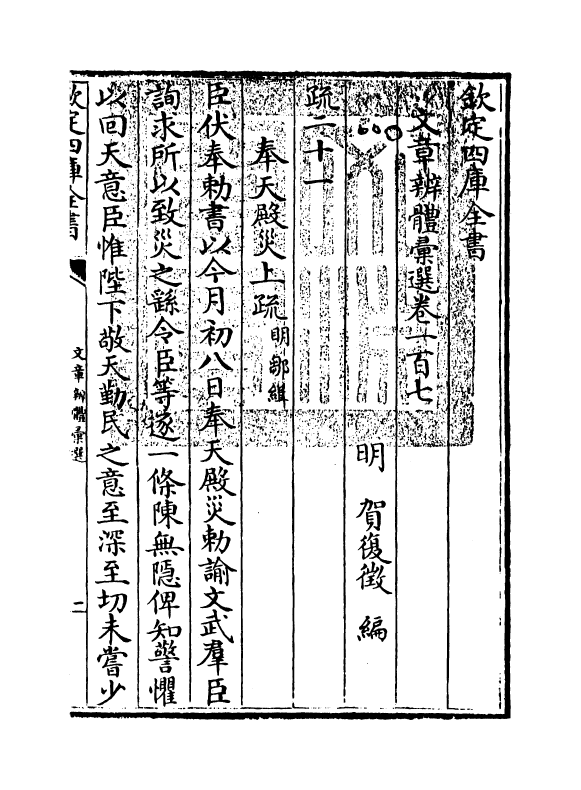 欽定四庫全書
文章辨體彙選卷一百七
明　賀復徵　編
疏二十一
奉天殿災上疏明鄒緝
臣伏奉勅書以今月初八日奉天殿災勅諭文武羣臣
詢求所以致災之繇令臣等逐一條陳無隱俾知警懼
以回天意臣惟陛下敬天勤民之意至深至切未嘗少
欽定四庫全書
文章辨體彙選
二